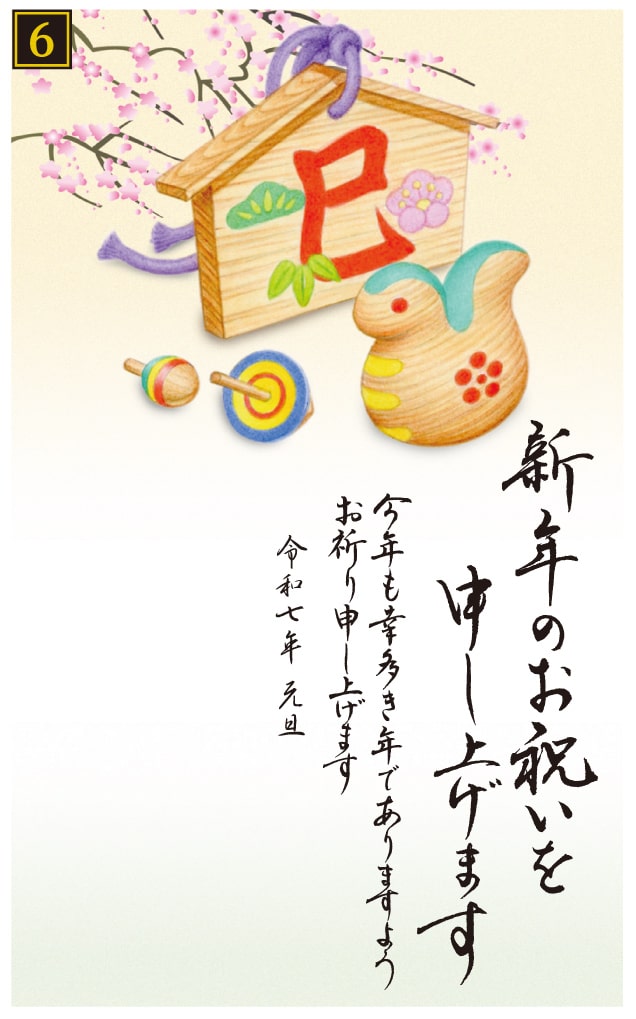 6
巳
新年のお祝いを
申し上げます
今年も幸多き年でありますよう
お祈り申し上げます
令和七年 元旦